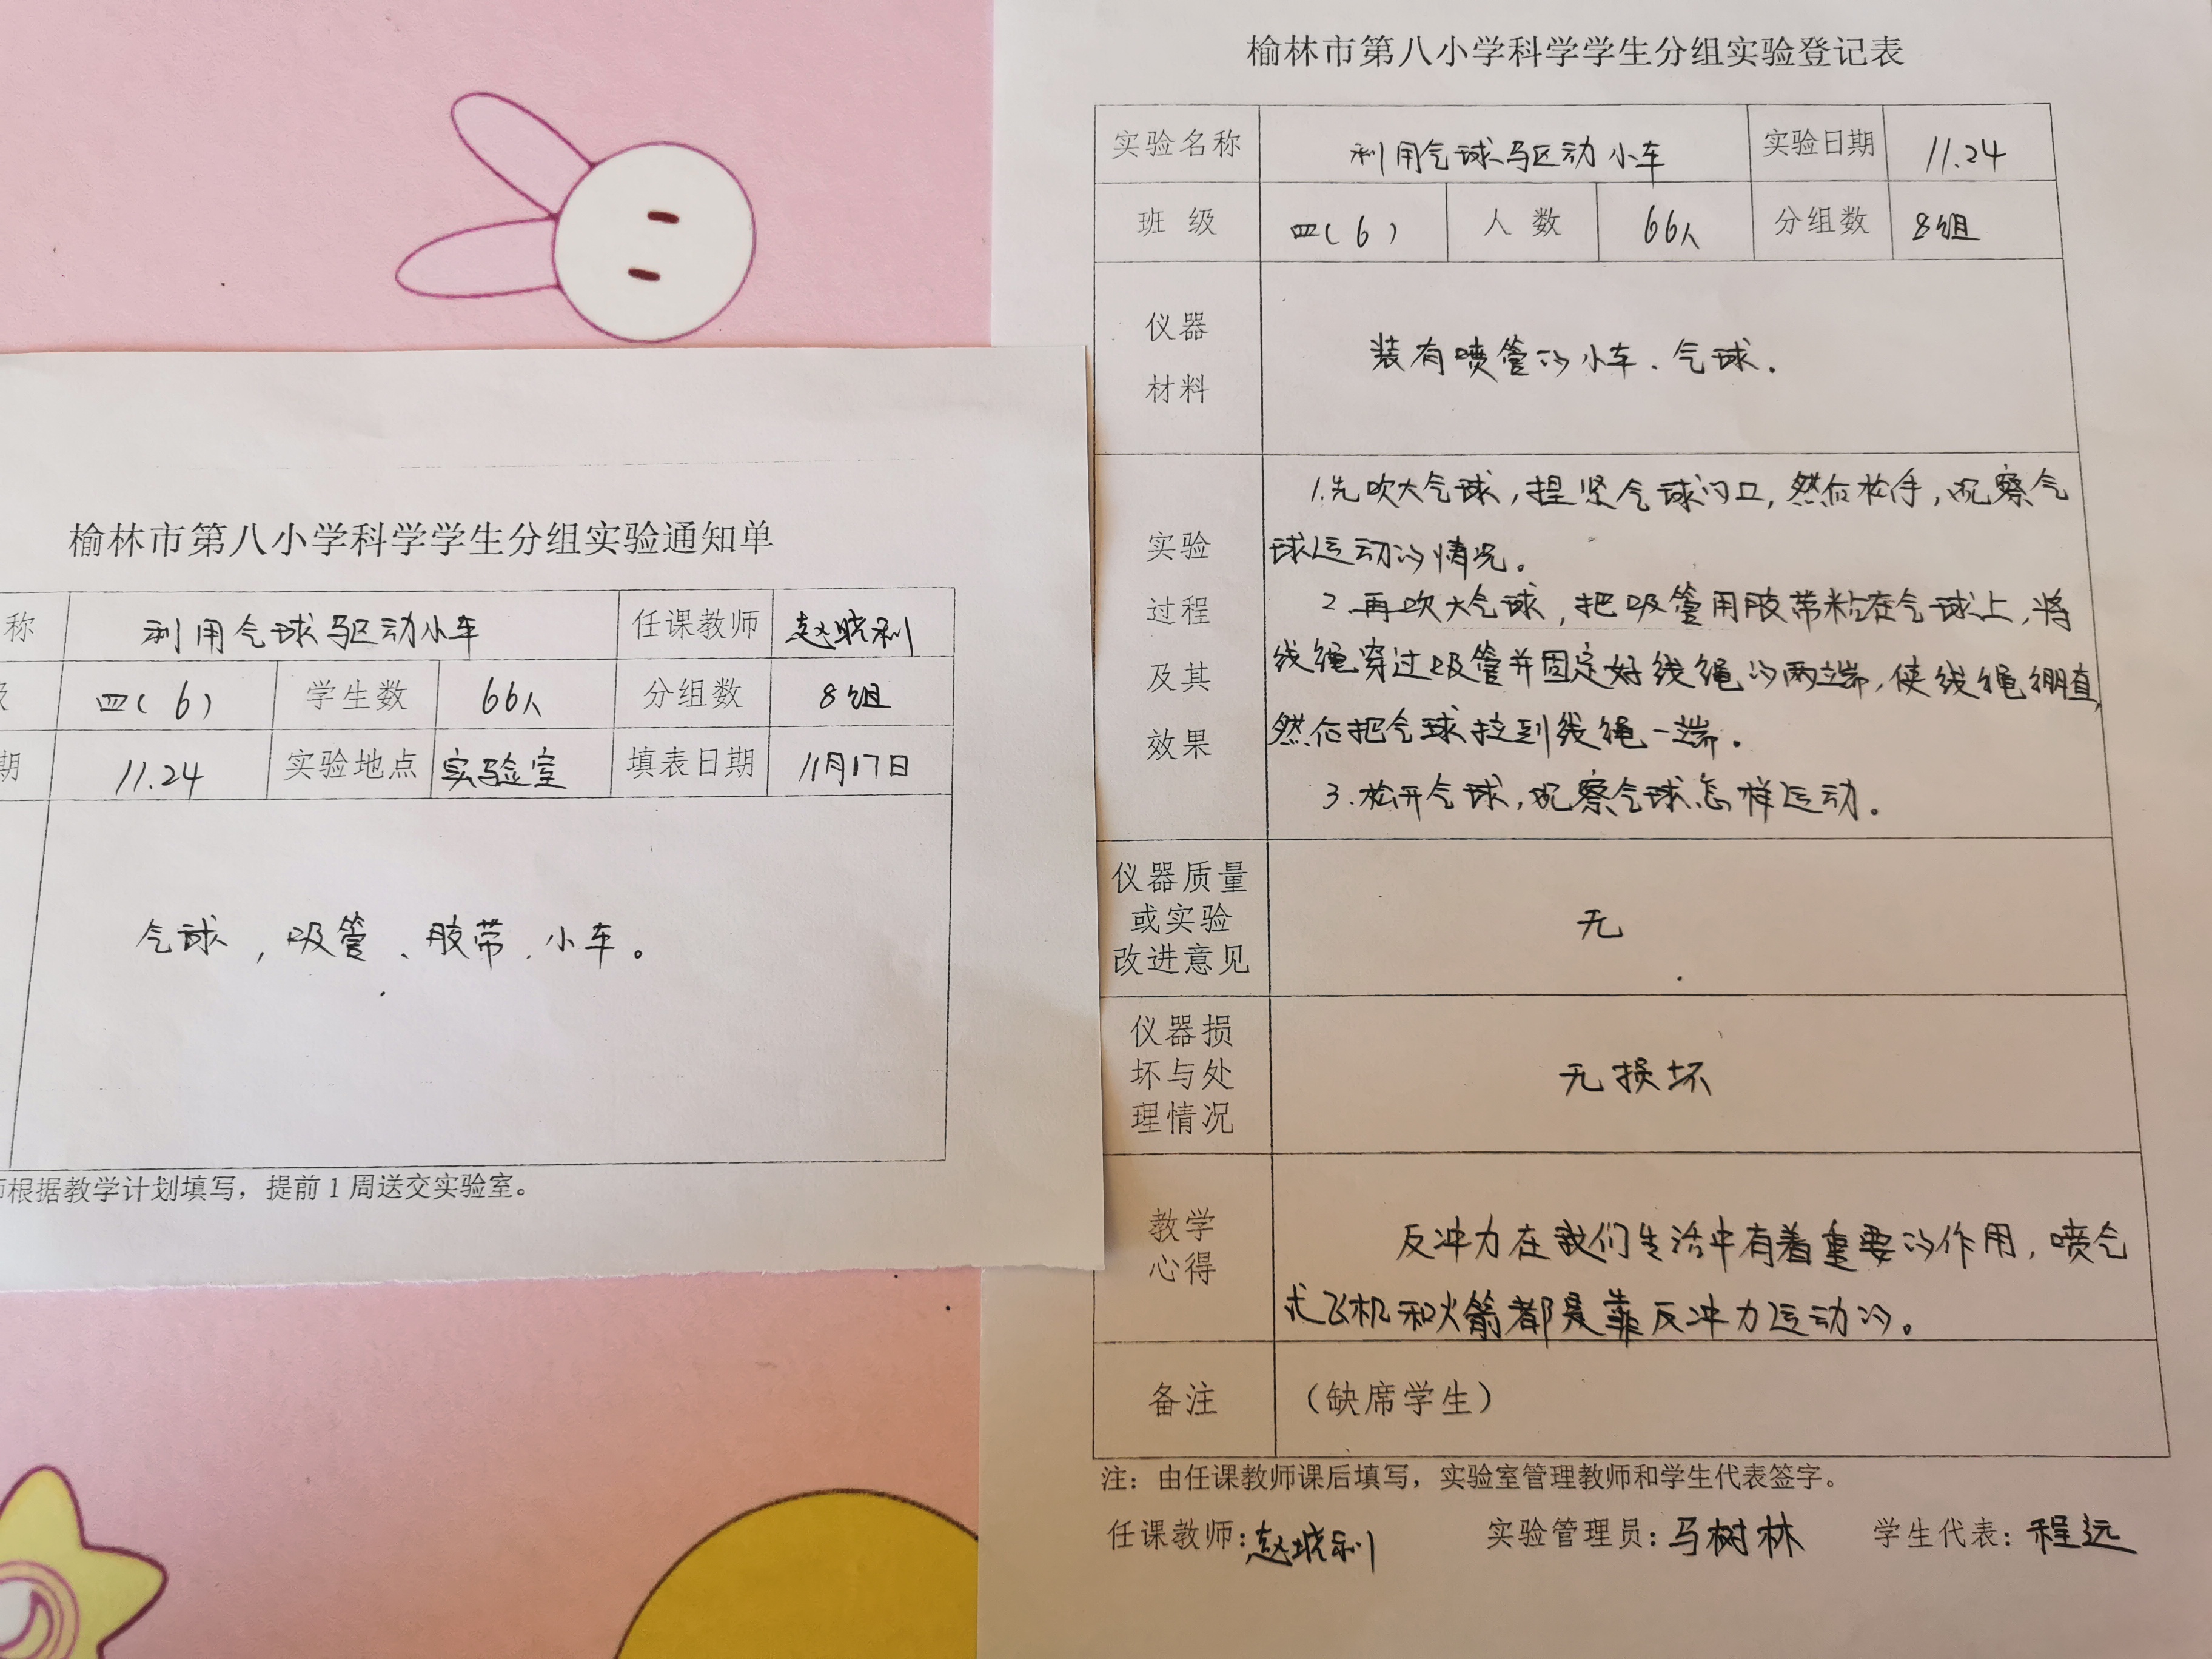 榆林市第八小学科学学生分组实验通知单
称 利用气球驱动小车 任课教师 赵晓利
级 四(6) 学生数 66人 分组数 8组
期 11.24 实验地点 实验室 填表日期 11月17日
气球,吸管、胶带、小车。
师根据教学计划填写,提前1周送交实验室。
榆林市第八小学科学学生分组实验登记表
实验名称 利用气球驱动小车 实验日期 11.24
班级 四(6) 人数 66人 分组数 8组
仪器
材料
装有喷管的小车、气球.
实验
过程
及其
效果
1.先吹大气球,捏紧气球的口,然后松手,观察气
球运动的情况。
2.再吹大气球,把吸管用胶带粘在气球上,将
线绳穿过吸管并固定好线绳的两端,使线绳绷直,
然后把气球拉到线绳一端。
3.松开气球,观察气球怎样运动。
仪器质量
或实验
改进意见
无
仪器损
坏与处
理情况
无损坏
教学
心得
反冲力在我们生活中有着重要的作用,喷气
式飞机和火箭都是靠反冲力运动的。
备注 (缺席学生)
注:由任课教师课后填写,实验室管理教师和学生代表签字。
任课教师:赵晓利 实验管理员:马树林 学生代表:程远